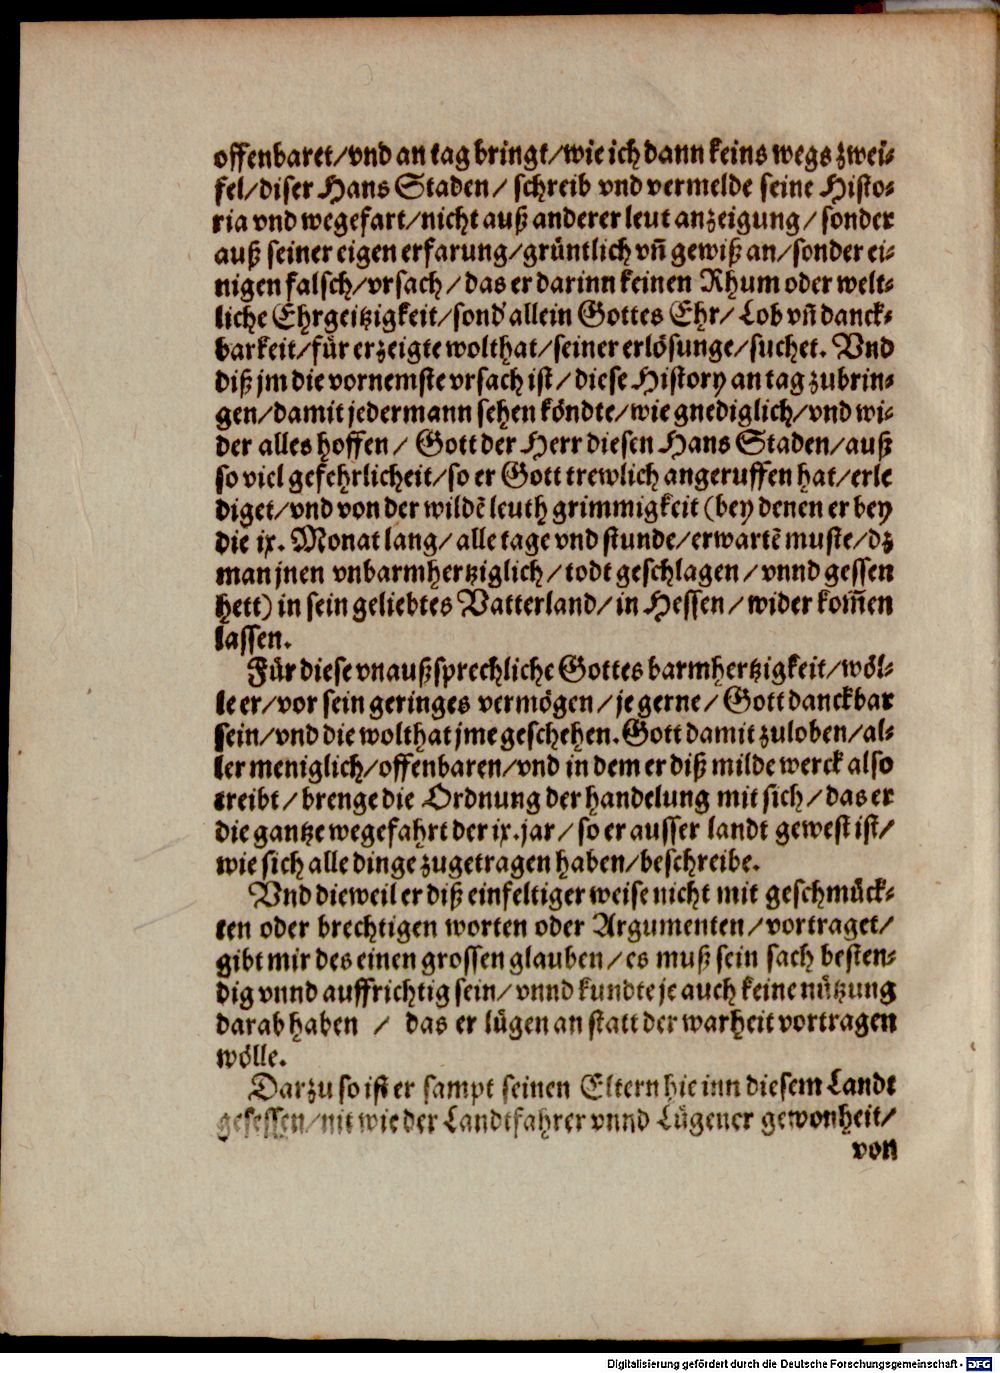 offenbaret/vnd an tag bringt/wie ich dann keins wegs zwei-
fel/diser Hans Staden/ schreib vnd vermelde seine Histo-
ria vnd wegefart/nicht auß anderer leut anzeigung/ sonder
auß seiner eigen erfarung/grüntlich vñ gewiß an/sonder ei-
nigen falsch/vrsach/das er darinn keinen Rhum oder welt-
liche Ehrgeitzigkeit/sond' allein Gottes Ehr/Lob vñ danck-
barkeit/für erzeigte wolthat/seiner erlösunge/suchet. Vnd
diß jm die vornemste vrsach ist/diese History an tag zubrin-
gen/damit jedermann sehen köndte/wie gnediglich/vnd wi-
der alles hoffen/ Gott der Herr diesen Hans Staden/auß
so viel gefehrlicheit/so er Gott trewlich angeruffen hat/erle
diget/vnd von der wildē leuth grimmigkeit (bey denen er bey
die ix. Monat lang/alle tage vnd stunde/erwartē muste/dz
man jnen vnbarmhertziglich/todt geschlagen/vnnd gessen
hett) in sein geliebtes Vatterland/in Hessen/wider kom̄en
lassen.
Für diese vnaußsprechliche Gottes barmhertzigkeit/wöl-
le er/vor sein geringes vermögen/je gerne/Gott danckbar
sein/vnd die wolthat jme geschehen.Gott damit zuloben/al-
ler meniglich/offenbaren/vnd in dem er diß milde werck also
treibt/brenge die Ordnung der handelung mit sich/das er
die gantze wegefahrt der ix.jar/so er ausser landt gewest ist/
wie sich alle dinge zugetragen haben/beschreibe.
Vnd dieweil er diß einfeltiger weise nicht mit geschmück-
ten oder brechtigen worten oder Argumenten/vortraget/
gibt mir des einen grossen glauben/es muß sein sach besten-
dig vnnd auffrichtig sein/vnnd kundte je auch keine nützung
darab haben / das er lügen an statt der warheit vortragen
wölle.
Darzu so ist er sampt seinen Eltern hie inn diesem Landt
gesessen/nit wie der Landtfahrer vnnd Lügener gewonheit/
von
Digitalisierung gefördert durch die Deutsche Forschungsgemeinschaft - DFG